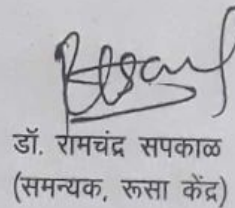 डॉ. रामचंद्र सपकाळ
(समन्यक, रूसा केंद्र)